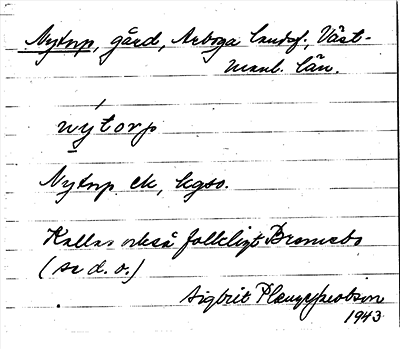 Nytorp, gård, Arboga landsf., Väst-
manl. län.
nytorp
Nytorp ek, kgso.
Kallas också folkligt Bromsbo
(se d. o.)
Sigbrit Plænge Jacobson
1943